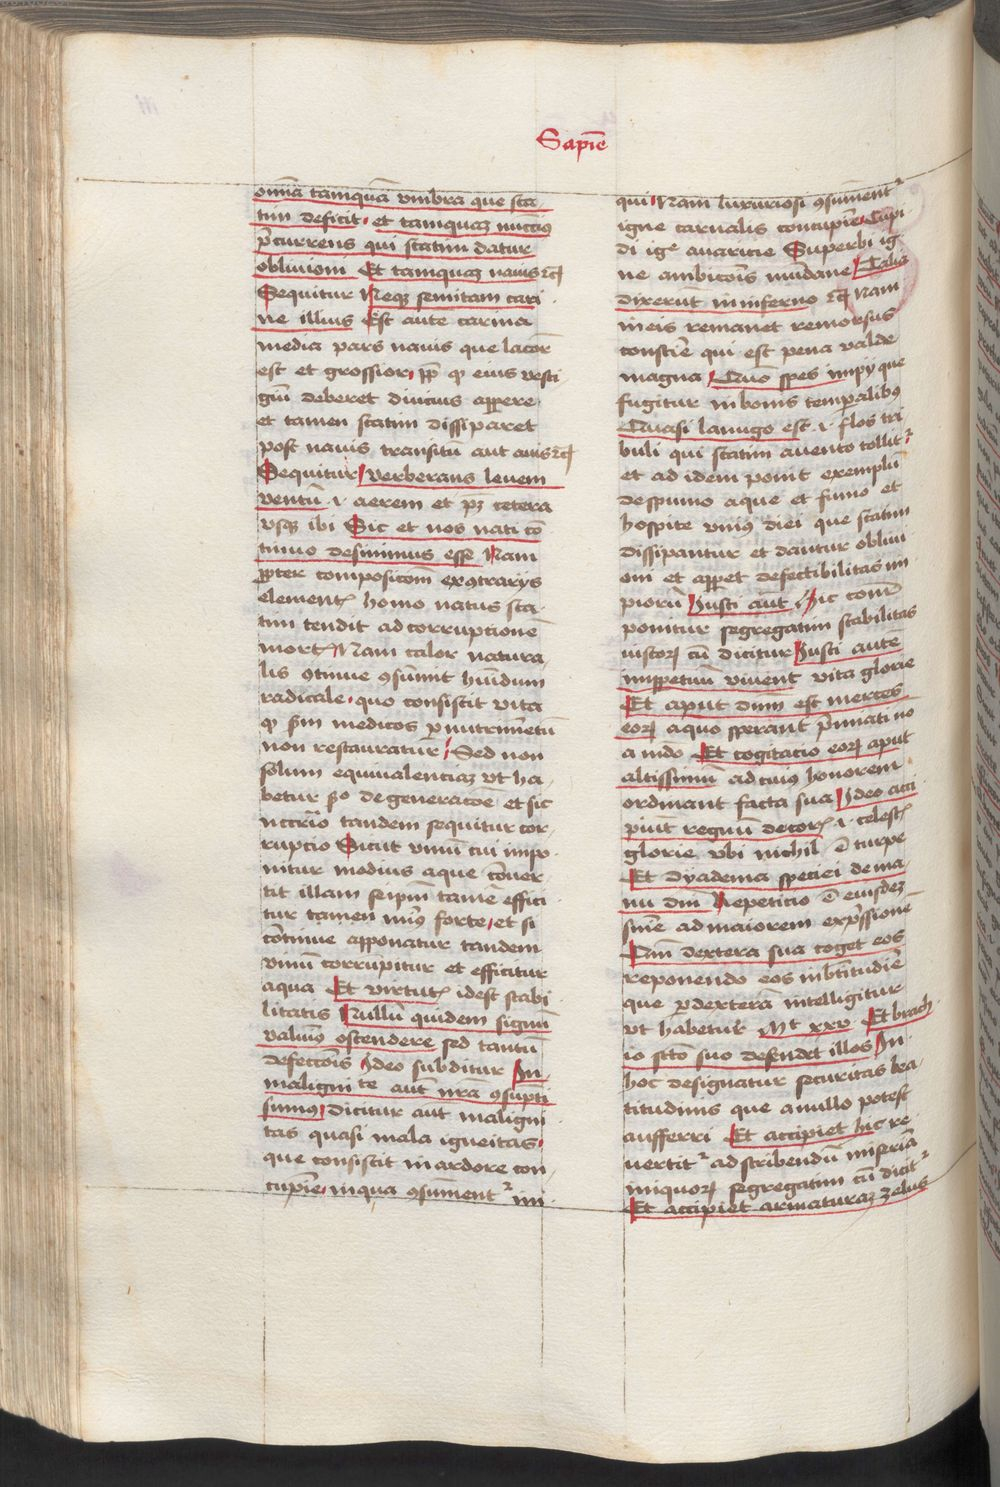 Sapiē
omīa tamquā vmbra que sta
tim deficit et tamquaꝫ nuccius
p̄currens qui statim datur
obliuioni Et tamquaꝫ nauis ⁊cͣ
Sequitur Neqꝫ semitam cari
ne illius Est aute carina
media pars nauis que lacior
est et grossior pp̄ qꝫ eius vesti
giū deberet diucius appere
et tamen statim dissiparet
post nauis transitū aut auis ⁊cͣ
Sequitur verberans leuem
ventū .i. aerem et pꝫ cetera
vsqꝫ ibi Sic et nos nati cō
tinuo desinimus esse Nam
ꝓpter compositionem ex ꝯtrarys
elementꝭ homo natus sta
tim tendit ad corrupcionē
mortꝭ Nam calor natura
lis ꝯtinue ꝯsūmit hūidum
radicale quo consistit vita
qꝫ scdm medicos p̄ nutrimentū
non restauratur Sed non
solum equiualenciaꝫ vt ha
betur pͦ de generacōe et sic
nccͦrio tandem sequitur cor
rupcio Sicut vinū cui impo
nitur medius aque cōuer
tit illam seipm̄ tamē effici
tur tamen min9 forte et si
cōtinue apponatur tandem
vinū corrūpitur et efficitur
aqua Et virtutꝭ idest stabi
litatis Nullū quidem signū
valuim9 ostendere sed tantū
defectōis Ideo subditur In
maligni te aut nr̄a ꝯsūpti
sumus Dicitur aut maligni
tas quasi mala igneitas
que consistit in ardore con
cupiē in qua ꝯsūment᷑ im
qui Nam luxuriosi ꝯsūment᷑
igne carnalis concupiē Cupi
di igͤ auaricie Superbi ig
ne ambicōis mūdane Talia
dixerūt in inferno ⁊cͣ Nam
in eis remanet remorsus
consciē qui est pena valde
magna Qm̄ spes impij que
fugitur in bonis temporalibꝰ
Quasi lanugo est .i. flos tri
buli qui statim a vento tollit᷑
et ad idem ponit exemplū
de spumo aque et fumo et
hospite vniꝰ diei que statim
dissipantur et dantur obliui
oni et appet defectibilitas im
piorū Iusti aut Hic com
ponitur segregatim stabilitas
iustorꝝ cū dicitur Iusti autē
inppetuū viuent vita glorie
Et aput dūm est merces
eorꝝ a quo sperant p̄miari nō
a mdo Et cogitacio eorꝝ aput
altissimū ad cuiꝰ honorem
ordinant facta sua Ideo acci
piūt regnū decorꝭ .i. celestꝭ
glorie vbi nichil ē turpe
Et dyadema speciei de ma
nu dni Repeticio ē eiusdeꝫ
snīe ad maiorem exp̄ssionē
Qm̄ dextera sua teget eos
reponendo eos in btitudiē
que p dexterā intelligitur
vt habetur Mt xxv Et brach
io scto suo defendet illos In
hoc designatur securitas bea
titudinis que a nullo potest
aufferri Et accipiet hic re
uertit᷑ ad scribendū miseriā
iniquorꝝ segregatim cū dicit᷑
Et accipiet armaturaꝫ zelus